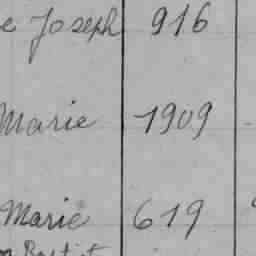 e Joseph 916
Marie 1909
Marie 619